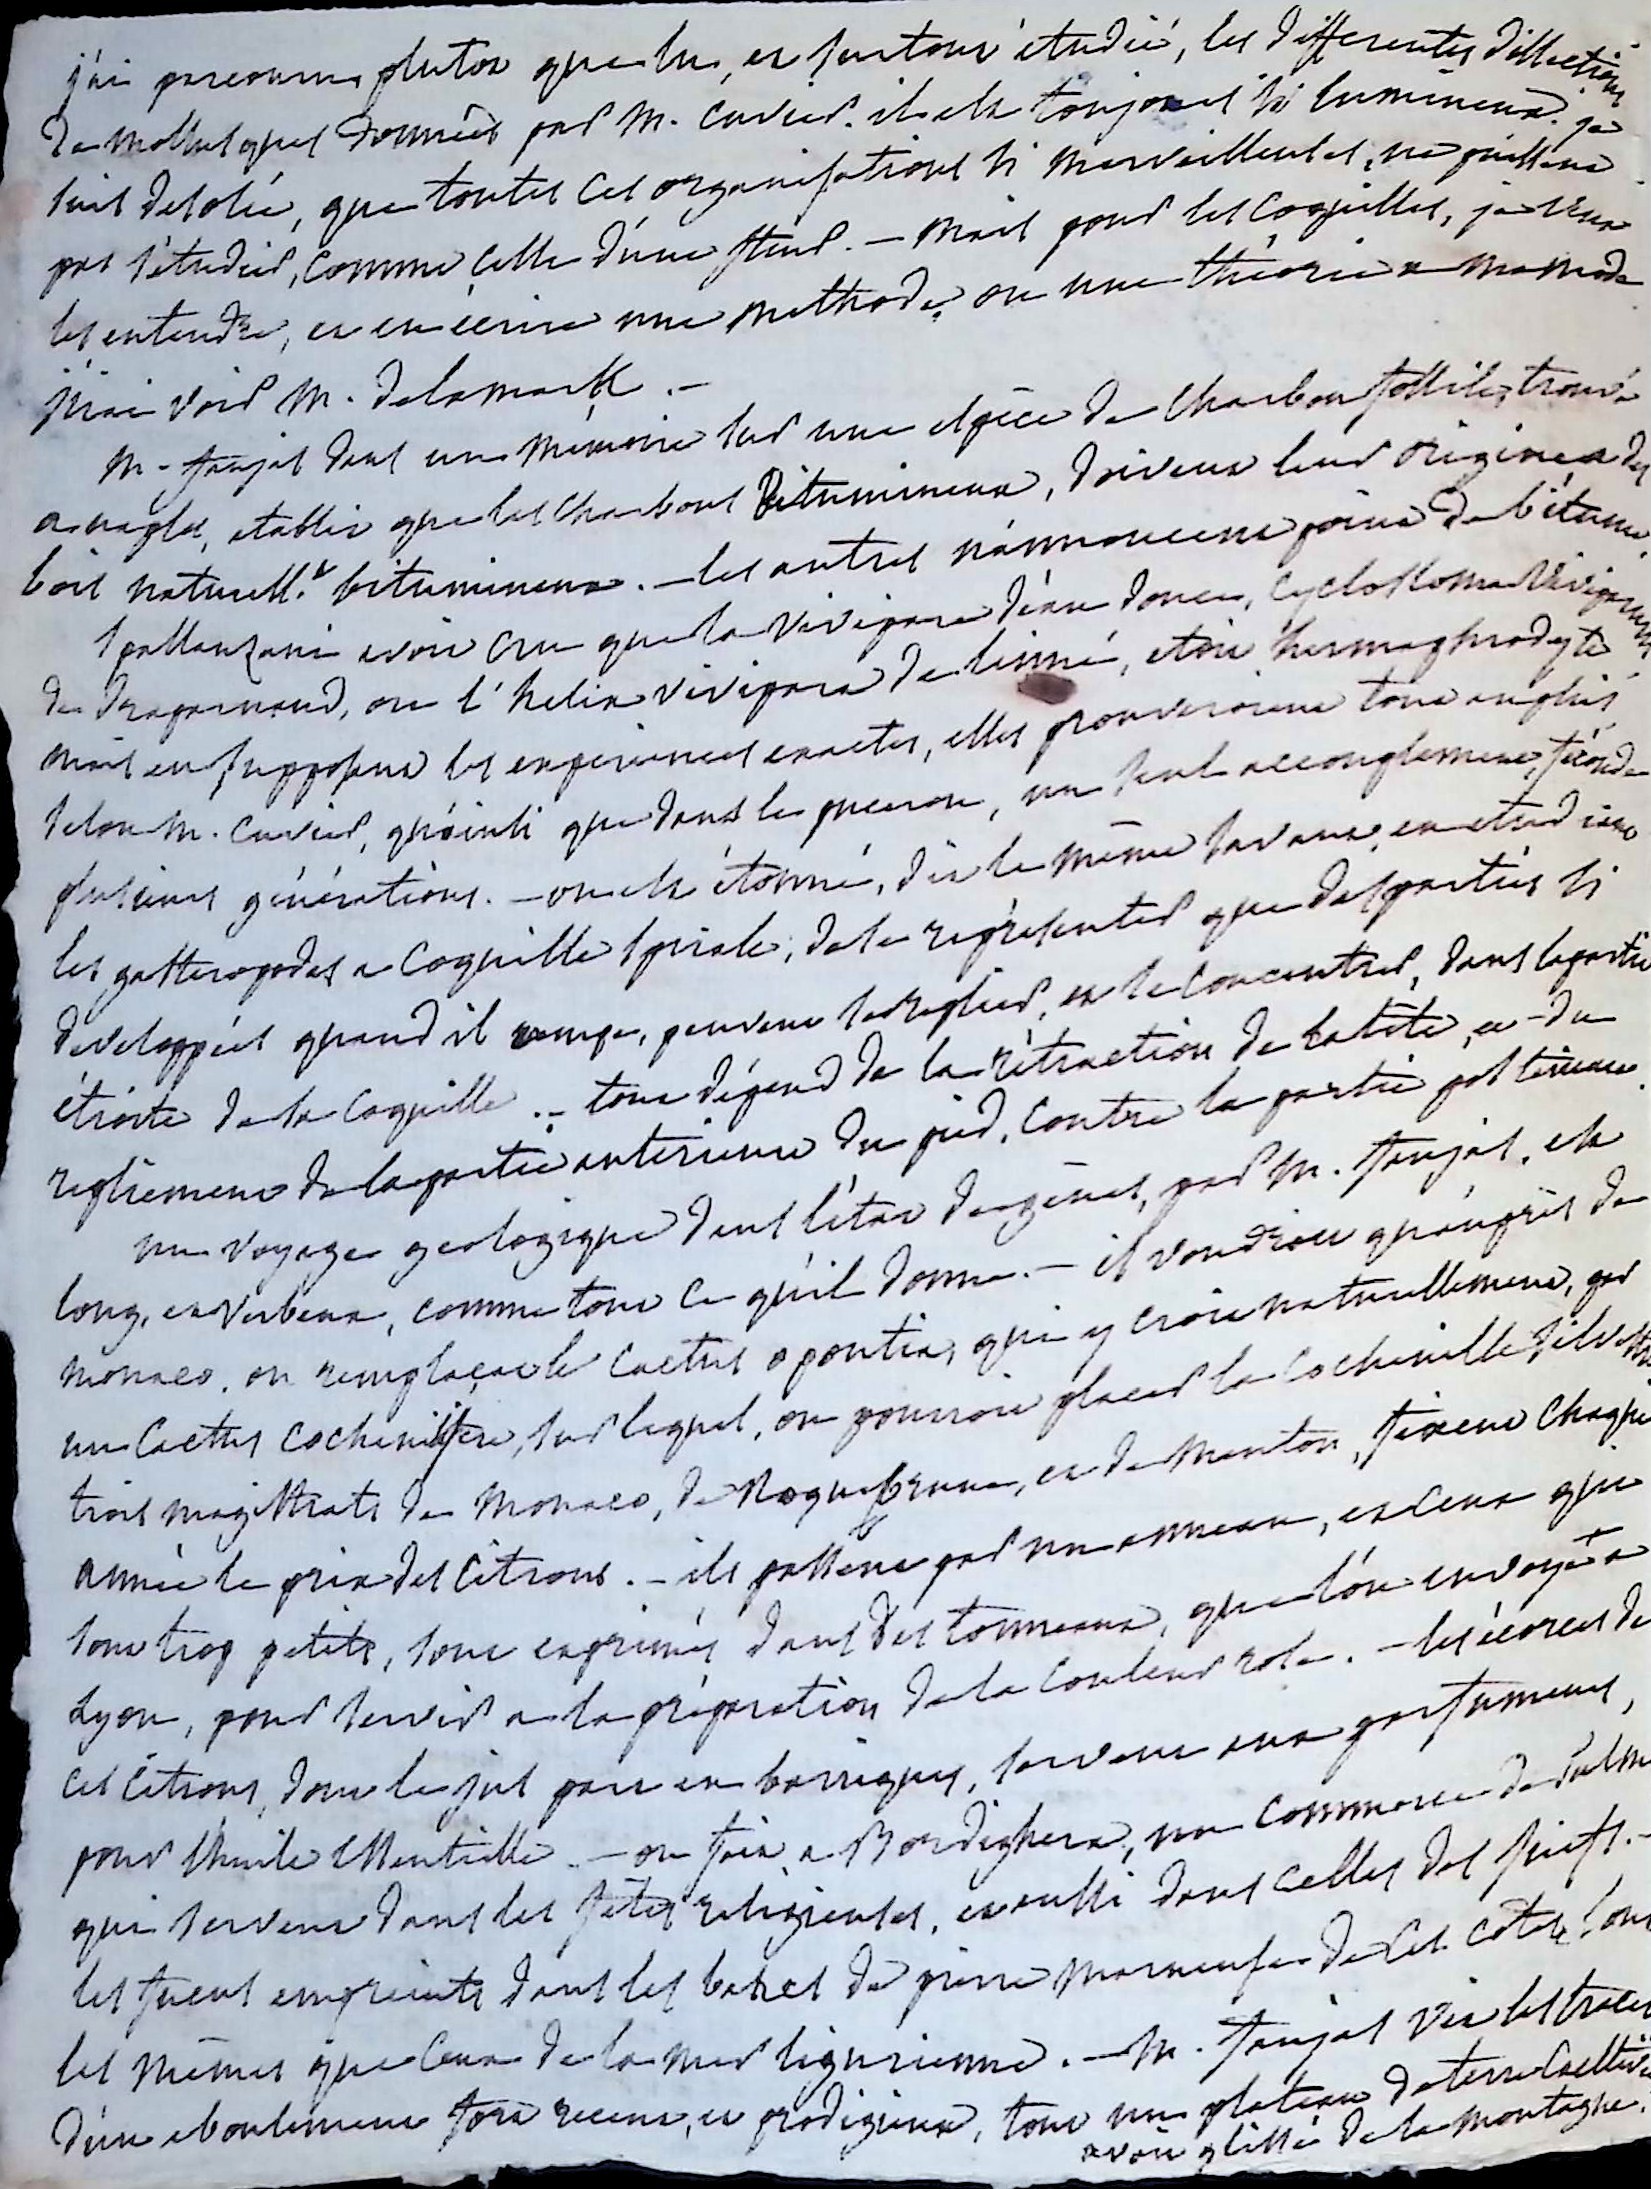 j'ai parcouru plutot que lu, et surtout étudié, les differentes dissections
de mollusques données par M. Cuvier. il est toujours si lumineux. je
suis desolée, que toutes ces organisations si merveilleuses, ne puissent
pas s'étudier, comme celle d'une fleur. — mais pour les coquilles, je veux
les entendre, et en écrire une methode, ou une théorie a ma mode
j'irai voir M. delamark. —
M. faujas dans un mémoire sur une espèce de charbon fossile, trouvé
a naples, etablit que les charbons bitumineux, doivent leur origine a des
bois naturell.t bitumineux. — les autres n'annoncent point de bitume.
Spallanzani avoit cru que la vivipare d'eau douce, cyclostoma viviparum
de Draparnaud, ou l'helix vivipara de linné, etoit hermaphrodyte
mais en supposant les experiences exactes, elles prouveroient tout au plus
selon M. Cuvier, qu'ainsi que dans le puceron, un seul accouplement, féconde
plusieurs générations. — on est étonné, dit le même savant, en etudiant
les gasteropodes a coquille spirale, de se représenter que des parties si
developpées quand il rampe, peuvent se replier, et se concentrer, dans la partie
étroite de la coquille. — tout dépend de la rétraction de la tête, et du
repliement de la partie anterieure du pied, contre la partie posterieure.
un voyage geologique dans l'état de gènes, par M. faujas, est
long, et verbeux, comme tout ce qu'il donne. — il voudroit qu'auprès de
monaco, on remplaçat le cactus opontia, qui y croit naturellement, par
un cactus cochenilfere, sur lequel, on pourroit placer la cochenille silvestre
trois magistrats de monaco, de Roquebrune, et de menton, fixent chaque
année le prix des citrons. — ils passent par un anneau, et ceux qui
sont trop petits, sont exprimés dans des tonneaux, que l'on envoye a
Lyon, pour servir a la préparation de la couleur rose. — les écorces de
ces citrons, dont le jus part en barriques, servent aux parfumeurs,
pour l'huile essentielle. — on fait a Bordighera, un commerce de palmes
qui servent dans les fêtes religieuses, et aussi dans celles des juifs. —
les fucus empreints dans les bases de pierre marneuse de ces côtes, sont
les mêmes que ceux de la mer ligurienne. — M. faujas vit les traces
d'un eboulement fort recent, et prodigieux, tout un plateau de terre cultivée
avoit glissé de la montagne.